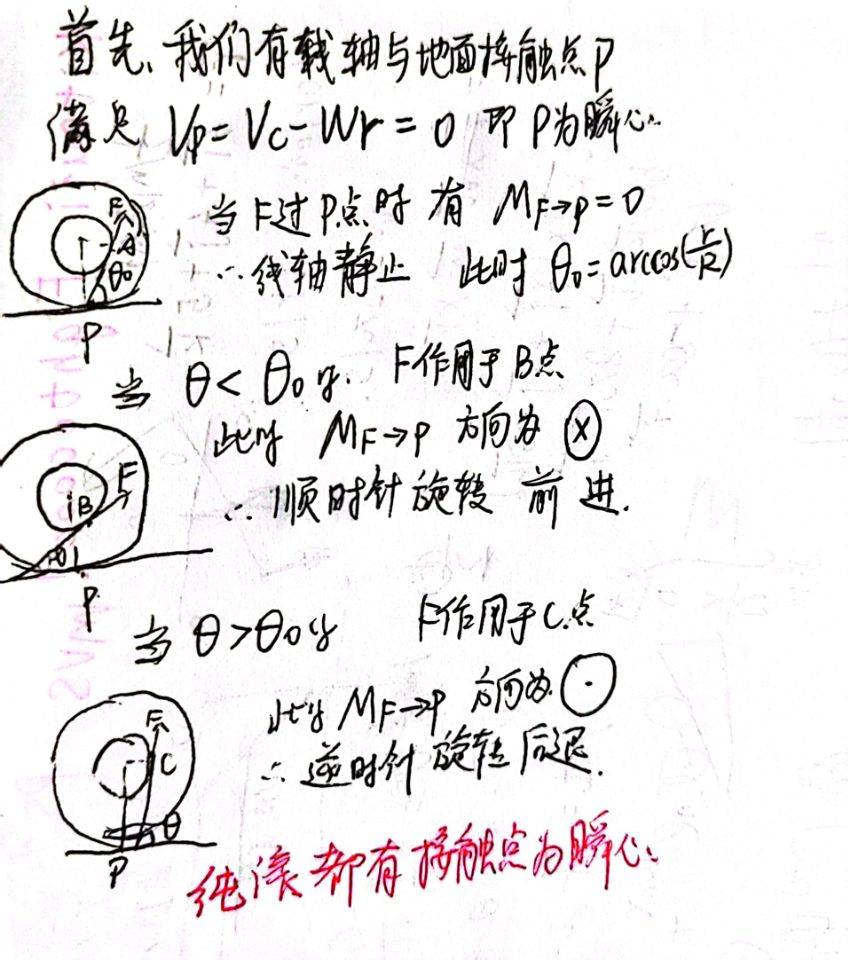 首先、我们有线轴与地面接触点P
满足 Vp = Vc - Wr = 0 即 P为瞬心.
当 F过 P点时 有 M_F→P = 0
∴ 线轴静止 此时 θ₀ = arccos(r/R)
F
A
θ₀
P
当 θ < θ₀时. F作用于 B点
此时 M_F→P 方向为 ⊗
∴ 顺时针旋转 前进.
F
B
θ
P
当 θ > θ₀时 F作用于 C.点
此时 M_F→P 方向为 ⊙
∴ 逆时针 旋转 后退.
F
C
θ
P
纯滚都有接触点为瞬心.